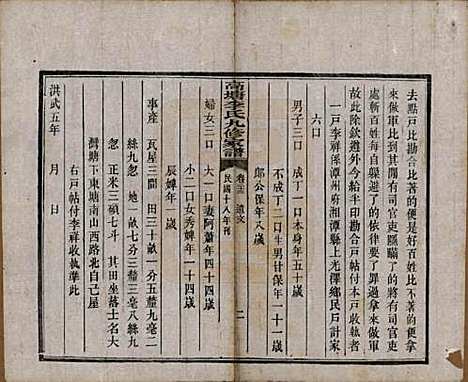 去點戶比勘合比著的便是好百姓比不著的便拿
來做軍比到其間有司官吏隱瞞了的將有司官吏
處斬百姓每自躲避了的依律要了罪過拿來做軍
故此除欽遵外今給半印勘合戶帖付本戶收執者
一戶李祥係潭州府湘潭縣上光樸鄉民戶計家
六口
男子三口 成丁一口本身年五十歲
不成丁二口生男甘保年一十一歲
郎公保年八歲
高塘李氏九修家譜 卷三 遺文 民國十八年刊 二
婦女三口 大一口妻阿蕭年四十四歲
小二口女秀婢年一十四歲
辰婢年一歲
事產 瓦屋三間 田二十畝一分五釐九毫二
絲九忽 民田一十三畝八分三釐三毫八絲九
忽 正米三碩七斗 其田坐落士名大
澗塘下東塘南山西路北自己屋
右戶帖付李祥收執準此
洪武五年 月 日